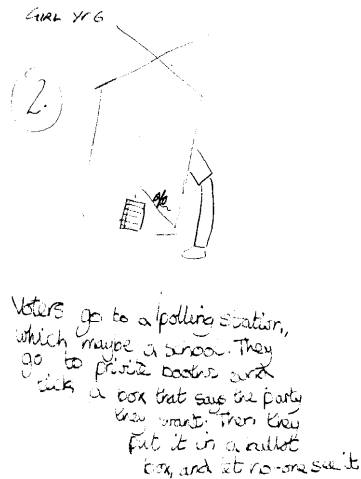 GIRL Yr 6
2.
Voters go to a polling station,
which maybe a school. They
go to private booths and
tick a box that says the party
they want. Then they
put it in a ballot
box, and let no-one see it